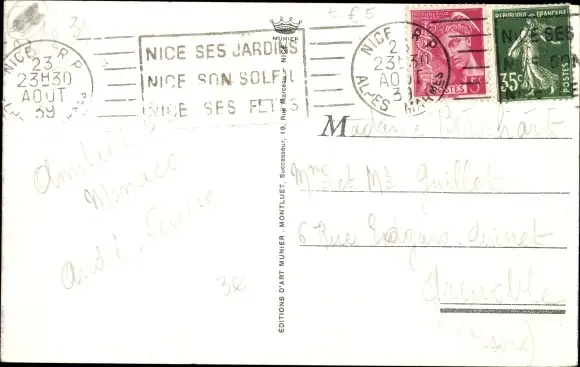 NICE R.P
23
23H30
AOUT
39
NICE SES JARDINS
NICE SON SOLEIL
NICE SES FETES
NICE R.P
2
23H30
AOU
39
ALPES MARMES
POSTES
REPUBLIQUE FRANÇAISE
35c
POSTES
NICE SES
± € 5
MUNIER
NICE
ÉDITIONS D'ART MUNIER - MONTLUET, Successeur, 19, Rue Marceau, NICE
Monaco
André Louise
3e
Madame
Mme et Mr Guillot
6 Rue Edgar Quinet
Grenoble
Isère